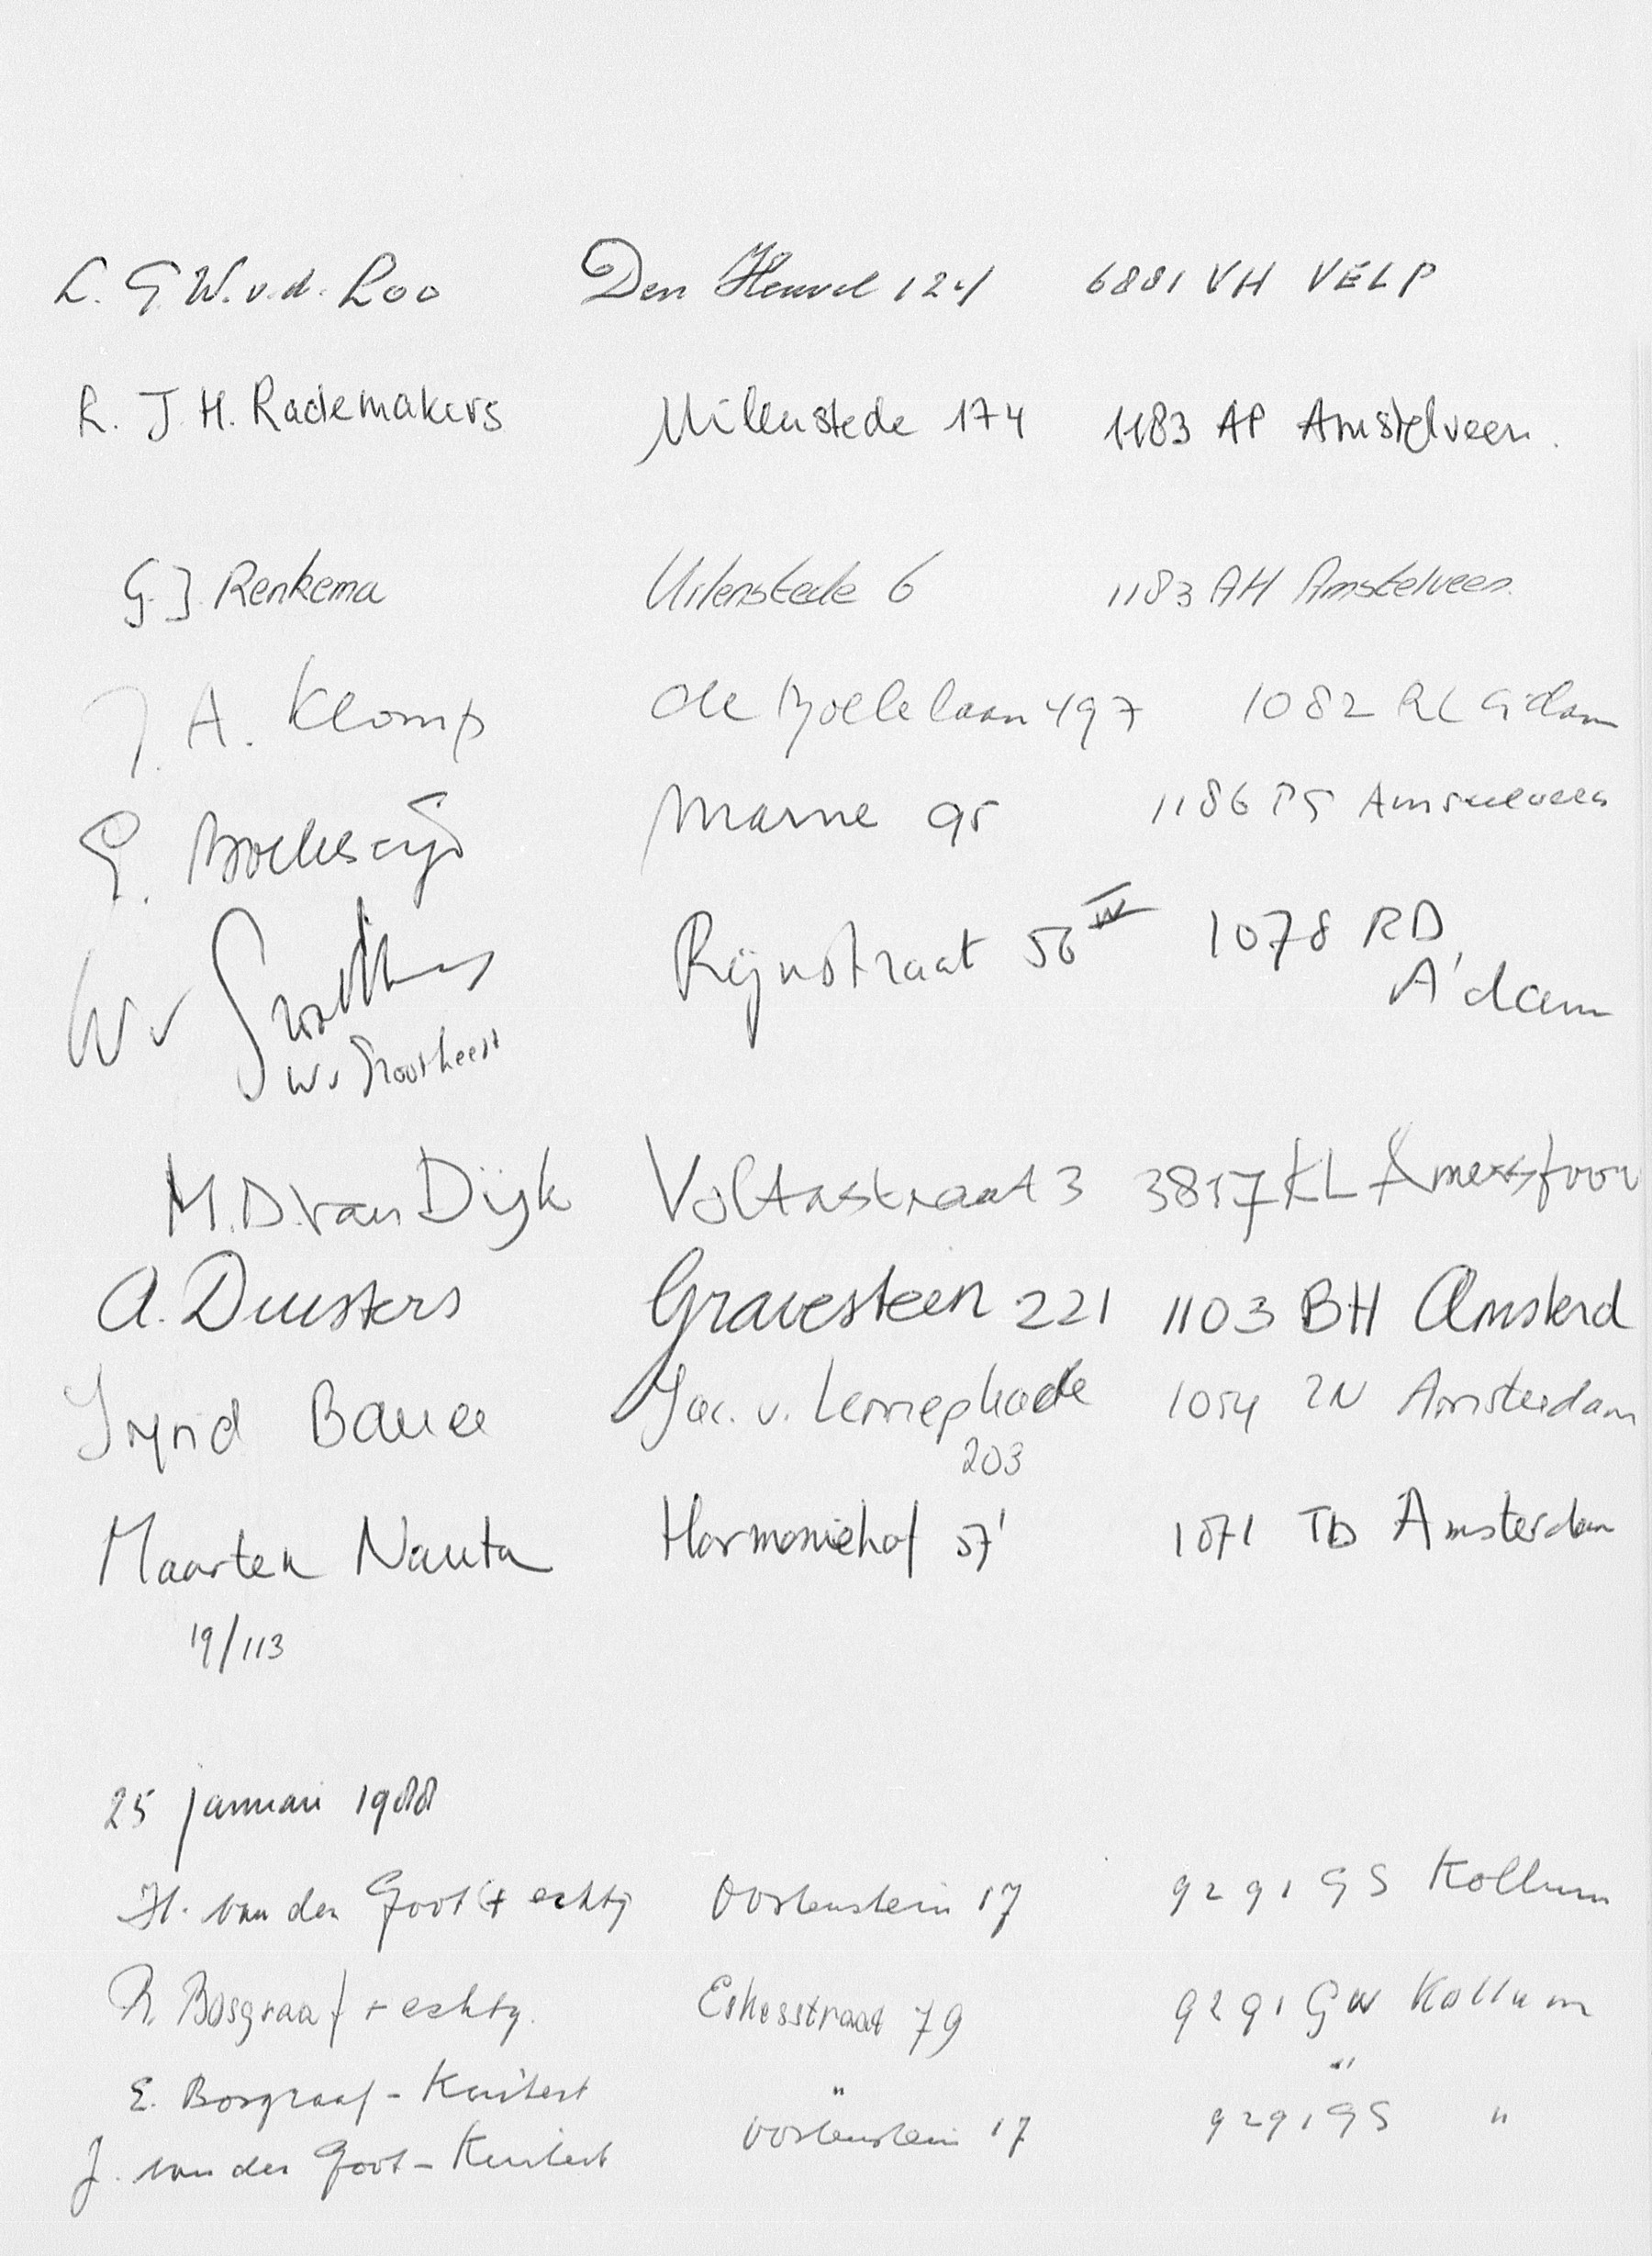 L. G. W. v. d. Loo Den Heuvel 124 6881 VH VELP
R. J. H. Rademakers Uilenstede 174 1183 AP Amstelveen.
G. J. Renkema Uilenstede 6 1183 AH Amstelveen.
J. A. Klomp de Boelelaan 497 1082 RL A'dam
E. Marne 95 1186 PG Amstelveen
W v Grootheest Rijnstraat 56 IV 1078 RD
A'dam
W v Grootheest
M. D. van Dijk Voltastraat 3 3817 KL Amersfoort
A. Duusters Gravesteen 221 1103 BH Amsterd
Ingrid Bauer Jac. v. Lennepkade 1054 ZN Amsterdam
203
Maarten Nauta Harmoniehof 57' 1071 TD Amsterdam
19/113
25 januari 1988
H. van der Goot (+ echtg Oostenstein 17 9291 GS Kollum
R. Bosgraaf + echtg. Eskesstraat 79 9291 GW Kollum
E. Bosgraaf - Kuitert " "
J. van der Goot - Kuitert Oostenstein 17 9291 GS "